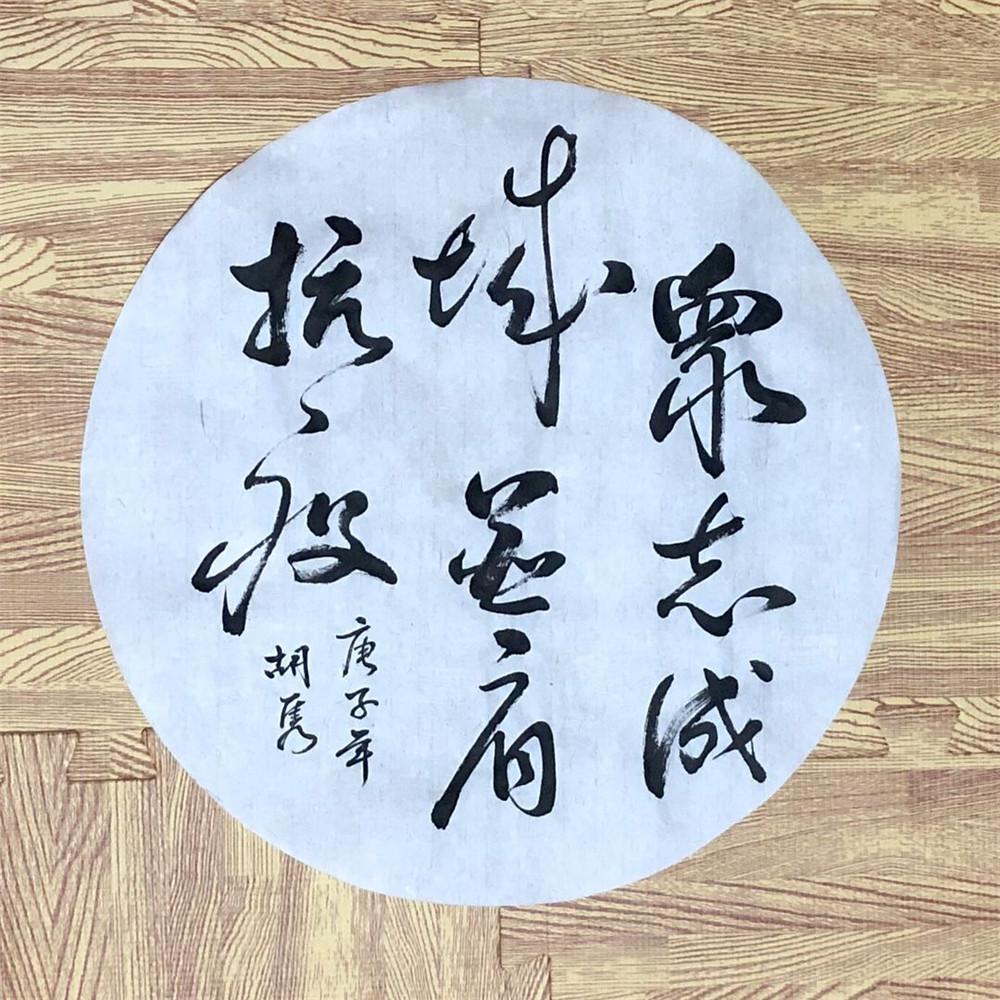 衆志成
城並肩
抗疫
庚子年
胡隽